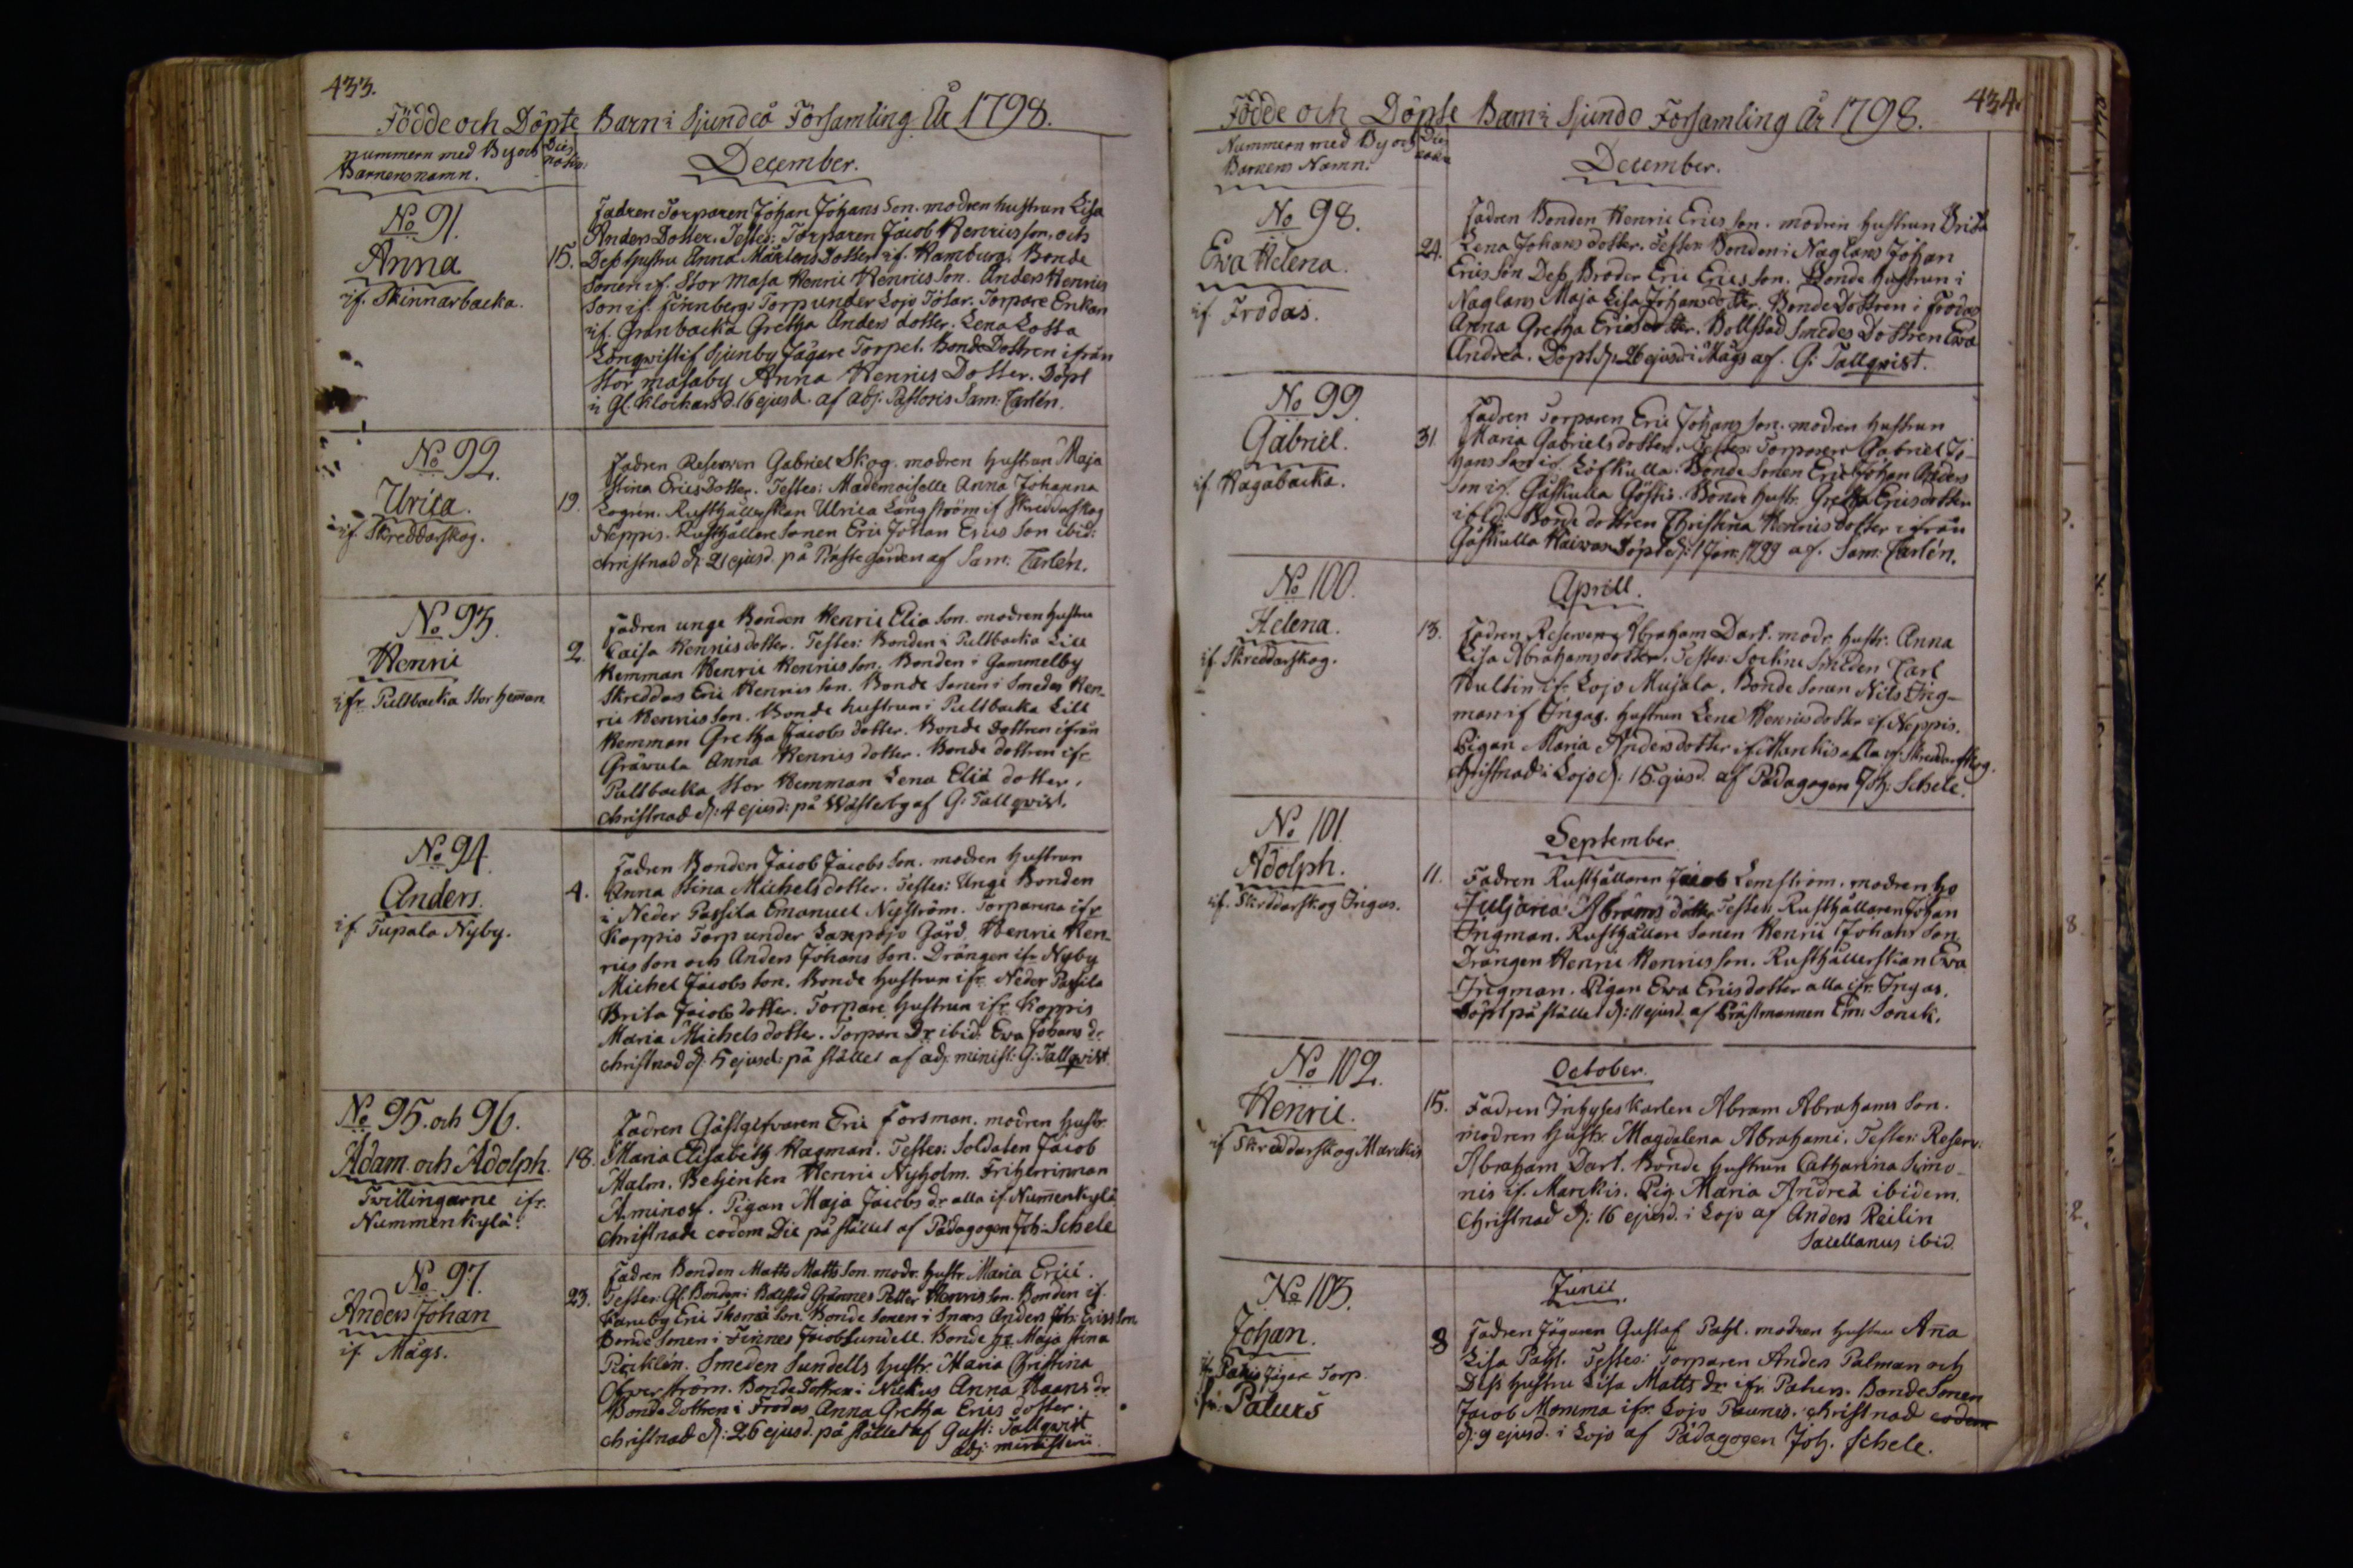 433.
Födde och Döpte Barn i Sjundeå Församling År 1798.
nummern med By och
Barnens namn.
Dies
natus.
December.
No 91.
Anna
if. Skinnarbacka.
15.
Fadren Torparen Johan Johans Son. modren hustrun Lisa
Anders Dotter. Testes: Torparen Jacob Henrics son, och
Dess hustru Anna Mårtens Dotter if. Hamburg. Bonde
Sonen if. Stor Masa Henric Henrics Son. Anders Henrics
Son if. Finnbergs Torp under Lojo Tötar. Torpare Enkan
if. Granbacka Gretha Anders dotter. Lena Lotta
Longwist if Sjunby Jägare Torpet. Bonde Dottren ifrån
Stor masaby Anna Henrics Dotter. Döpt
i Gl. Klockars d. 16 ejusd. af adj. Pastoris Sam: Carlén.
No 92.
Urica.
if. Skreddarskog.
19.
Fadren Reserven Gabriel Skog. modren hustrun Maja
Stina Erics Dotter. Testes: Mademoiselle Anna Johanna
Logren. Rusthållerskan Ulrica Långström if Skreddarskog
Neppis. Rusthållare Sonen Eric Johan Erics Son ibid:
christnad d: 21 ejusd. på Prästegården af Sam: Carlén.
No 93.
Henric
ifr. Pullbacka Stor heman.
2.
Fadren unge Bonden Henric Elia Son. modren hustru
Caisa Henrics dotter. Testes: Bonden i Pullbacka Lill
Hemman Henric Henrics Son. Bonden i Gammelby
Skreddars Eric Henrics Son. Bonde Sonen i Smedas Hen-
ric Henrics Son. Bonde hustrun i Pullbacka Lill
Hemman Gretha Jacobs dotter. Bonde Dottren ifrån
Gräwula Anna Henrics dotter. Bonde dottren ifr
Pullbacka Stor Hemman Lena Eliæ dotter.
christnad d: 4 ejusd: på Wästerby af G: Tallqvist.
No 94.
Anders.
if. Tupala Nyby.
4.
Fadren Bonden Jacob Jacobs Son. modren hustrun
Anna Stina Michels dotter. Testes: Unge Bonden
i Neder Passila Emanuel Nyström. Torparena ifr
Koppis Torp under Laxpojo Gård. Henric Hen-
rics Son och Anders Johans Son. Drängen ifr. Nyby
Michel Jacobs Son. Bonde hustrun ifr. Neder Passila
Brita Jacobs dotter. Torpare hustrun ifr. Koppis
Maria Michels dotter. Torpare Dr ibid: Ewa Johans dr
christnad d: 5 ejusd: på stället af adj. minist: G: Tallqvist.
No 95. och 96.
Adam och Adolph.
Twillingarne ifr.
Nummenkylä.
18.
Fadren Gästgifvaren Eric Forsman. modren hustr.
Maria Elisabeth Hagman. Testes: Soldaten Jacob
Malm. Betjenten Henric Nyholm. Friherrinnan
Aminoff. Pigan Maja Jacobs dr alla if. Numenkylä
christnade eodem Die på stället af Pädagogen Joh: Schele
No 97.
Anders Johan
if. Mågs.
23.
Fadren Bonden Matts Matts Son. modr. hustr. Maria Erici.
Testes: Gl. Bonden i Bollstad Grännes Petter Henrics Son. Bonden if.
Karuby Eric Thomæ Son. Bonde Sonen i Snars Anders Joh: Erics Son
Bonde Sonen i Finnes Jacob Sundell. Bonde hr Maja Stina
Picklén. Smeden Sundells hustr. Maria Christina
Öfwerström. Bonde Dottren i Nickus Anna Haans dr
Bonde Dottren i Frodas Anna Gretha Erics dotter.
christnad d: 26 ejusd. på stället af Gust: Tallqwist
adj: ministerii.
434.
Födde och Döpte Barn i Sjundo Församling År 1798.
Nummern med By och
Barnens Namn.
Dies
natus
December.
No 98.
Ewa Helena.
if. Frodas.
24.
Fadren Bonden Henric Erics Son. modren hustrun Brita
Lena Johans dotter. Testes: Bonden i Naglans Johan
Erics Son Dess Broder Eric Erics Son. Bonde hustrun i
Naglans Maja Lisa Johans dotter. Bonde Dottren i Frodas
Anna Gretha Erics dotter. Bollstad Smedes Dottren Ewa
Andreæ. Döpt d: 26 ejusd i Mågs af. G: Tallqwist.
No 99.
Gabriel.
if. Hagabacka.
31.
Fadren Torparen Eric Johans Son. modren hustrun
Maria Gabriels dotter. Testes: Torparen Gabriel Jo-
hans Son if. Löfkulla. Bonde Sonen Eric Johan Anders
Son if. Gåskulla Göstis. Bonde hustr. Gretha Erics dotter
ibid: Bonde dottren Christina Henrics dotter ifrån
Gåskulla Kaiwas Döpt d: 1 Jan: 1799 af. Sam: Carlén.
Aprill.
No 100.
Helena.
if. Skreddarskog.
13.
Fadren Reserven Abraham Dart. modr. hustr. Anna
Lisa Abrahams dotter. Testes: Sockne Smeden Carl
Hultin if. Lojo Mujala. Bonde Sonen Nils Ing-
man if Ingas. hustrun Lena Henrics dotter if Neppis.
Pigan Maria Anders dotter if Marckis alla if. Skreddarskog.
christnad i Lojo d: 15. ejusd. af Pädagogen Joh: Schele.
September
No 101.
Adolph.
if. Skreddarskog Ingas.
11.
Fadren Rusthållaren Jacob Lemström. modren ho
Juljana Abrams dotter Testes: Rusthållaren Johan
Ingman. Rusthållare Sonen Henric Johans Son
Drängen Henric Henrics Son. Rusthållerskan Ewa
Ingman. Pigan Ewa Erics dotter alla ifr. Ingas.
Döpt på stället d: 11 ejusd. af Prästmannen Em: Sonck.
October.
No 102.
Henric.
if Skreddarskog Marckis
15.
Fadren Inhyses karlen Abram Abrahams Son.
modren hustr. Magdalena Abrahami. Testes: Reserv:
Abraham Dart. Bonde hustrun Catharina Simo-
nis if. Marckis. Pig. Maria Andreæ ibidem.
Christnad d: 16 ejusd. i Lojo af Anders Reilin
Sacellanus ibid.
Junii.
No 103.
Johan.
if Pakis Jägare Torp.
ifr: Palurs
8
Fadren Jägaren Gustaf Pahl. modren hustru Aña
Lisa Pahl. Testes: Torparen Anders Palman och
Dess hustru Lisa Matts dr ifr. Palurs. Bonde Sonen
Jacob Momma ifr. Lojo Paunis. christnad eodem
d: 9 ejusd. i Lojo af Pädagogen Joh. Schele.